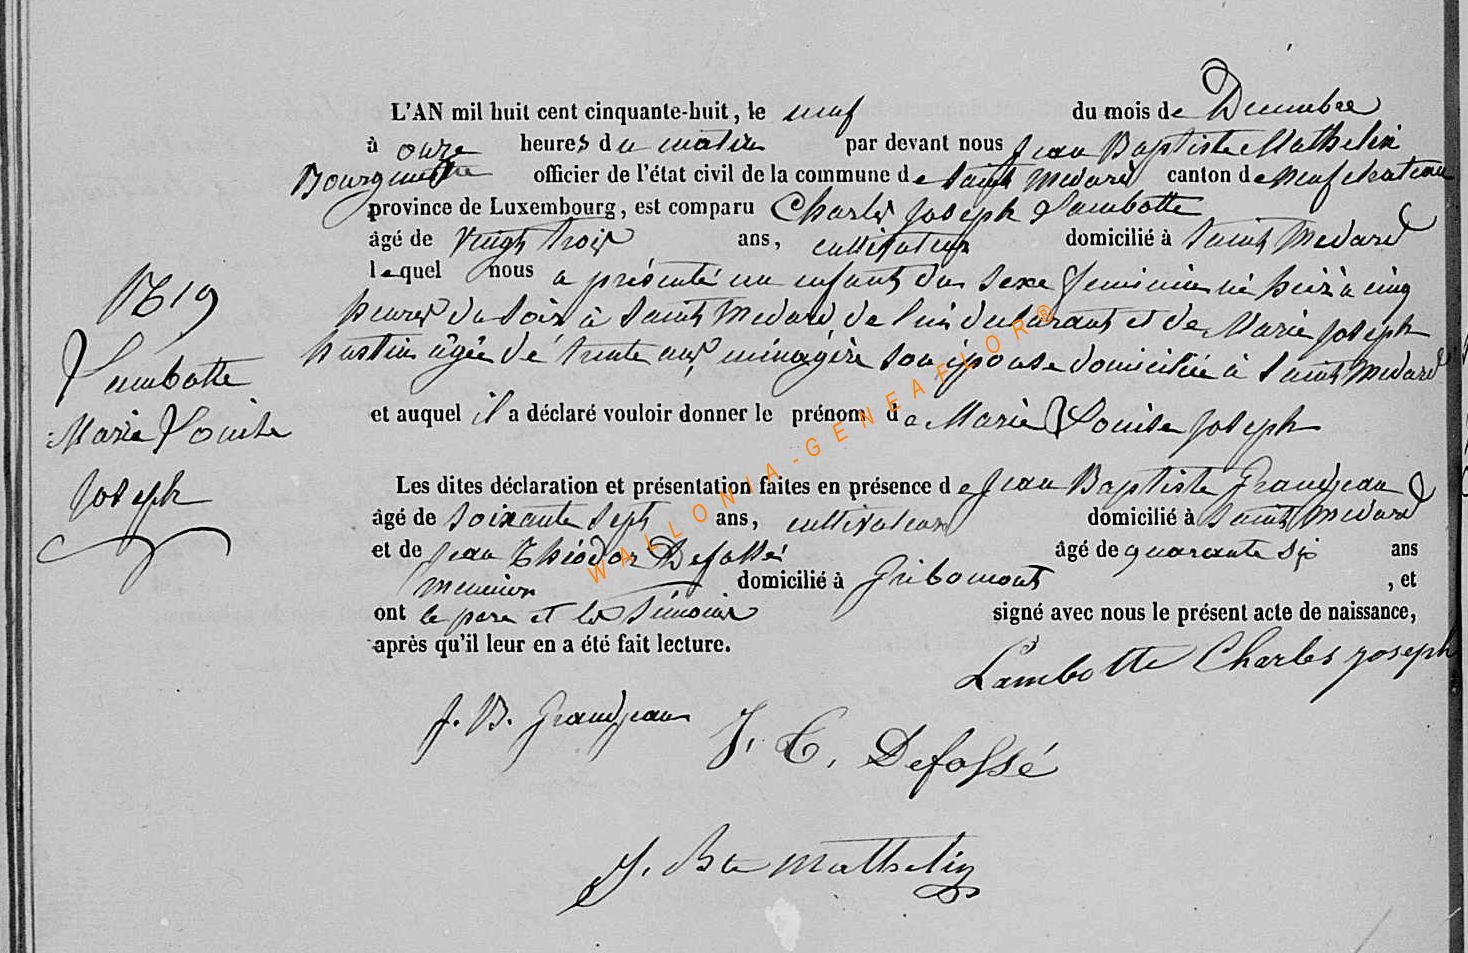 L'AN mil huit cent cinquante-huit, le neuf du mois de Décembre
à onze heures du matin par devant nous Jean Baptiste Mathelin
Bourgmestre officier de l'état civil de la commune de Saint Medard canton de Neufchateau
province de Luxembourg, est comparu Charles Joseph Lambotte
âgé de vingt trois ans, cultivateur domicilié à Saint Medard
lequel nous a présenté un enfant du sexe feminin né hier à cinq
heures du soir à Saint Medard de lui déclarant et de Marie Joseph
âgée de trente ans, ménagère son épouse domiciliée à Saint Medard
et auquel il a déclaré vouloir donner le prénom de Marie Louise Joseph
N 19
Lambotte
Marie Louise
Joseph
Les dites déclaration et présentation faites en présence de Jean Baptiste Grandjean
âgé de soixante sept ans, cultivateur domicilié à Saint Medard
et de Jean Théodor Defossé âgé de quarante six ans
meunier domicilié à Gribomont , et
ont le pere et les témoins signé avec nous le présent acte de naissance,
après qu'il leur en a été fait lecture.
Lambotte Charles joseph
J. B. Grandjean
J. T. Defossé
J. Bte Mathelin
WALLONIA-GENEAFLOR®